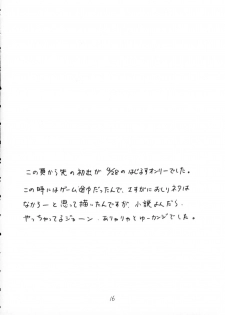 この頁から先の初出が 9/28の はじるすオンリーでした。
この時にはゲーム途中だったんで、さすがにおしりネタは
なかろーと思って描ったんですが、小説よんだら
やっちゃってるジョーン。ありゃりゃてゆーカンジでした。
16